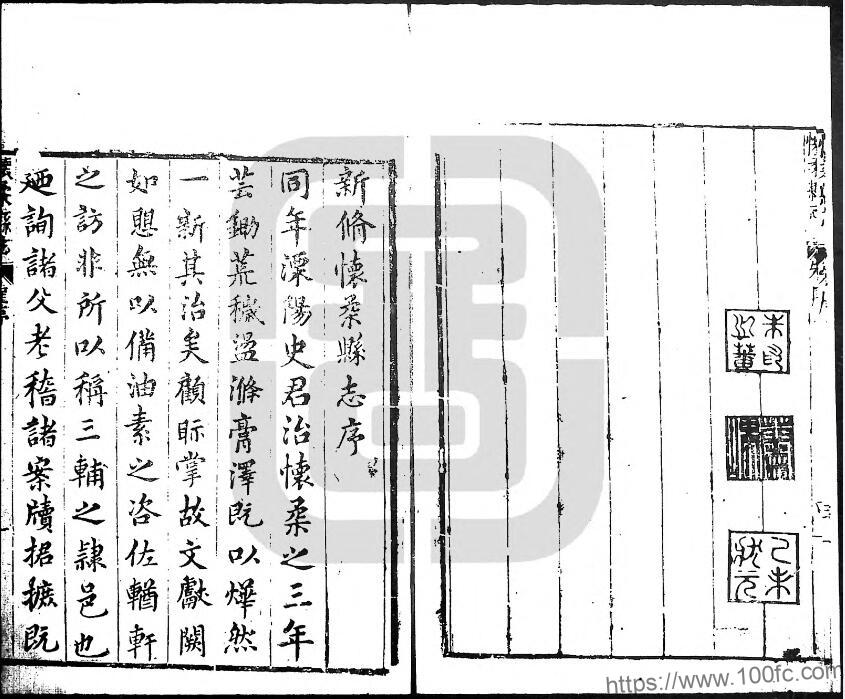 己未狀元
新脩懷柔縣志序
同年溧陽史君治懷柔之三年
芸鋤荒穢盪滌膏澤既以燁然
一新其治矣顧眎掌故文獻闕
如愳無以備油素之咨佐輶軒
之訪非所以稱三輔之隸邑也
廼詢諸父老稽諸案牘捃摭既
懷柔縣志
https://www.100fc.com